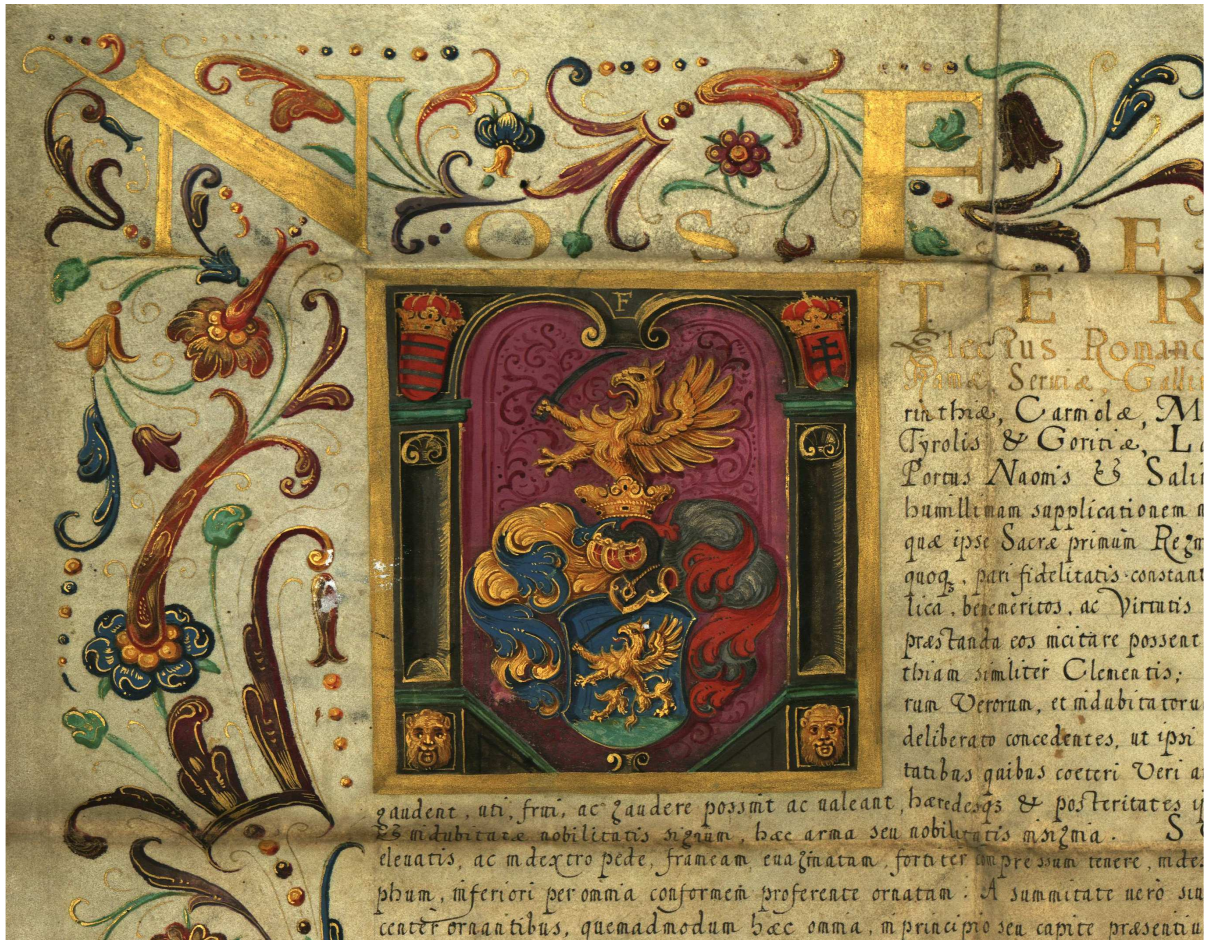 NOS FE
F
TER
Electus Romano
Ramæ, Seruiæ, Galli
rinthiæ, Carniolæ, M
Tyrolis & Goritiæ, L
Portus Naonis & Sali
humillimam supplicationem
quæ ipse Sacræ primum Regn
quoq, pari fidelitatis constant
lica, benemeritos, ac Virtutis
præstanda eos incitare possent
thiam similiter Clementis,
rum Verorum, et indubitatoru
deliberato concedentes, ut ipsi
tatibus quibus cœteri Veri a
gaudent, uti, frui, ac gaudere possint ac ualeant, hæredesqz & posteritates
indubitatæ nobilitatis signum, hæc arma seu nobilitatis insignia. S
eleuatis, ac in dextro pede, frameam euaginatam, fortiter impressum tenere,
phum, inferiori per omnia conformem proferente ornatam: A summitate uero
center ornantibus, quemadmodum hæc omnia, in principio seu capite præsentiu